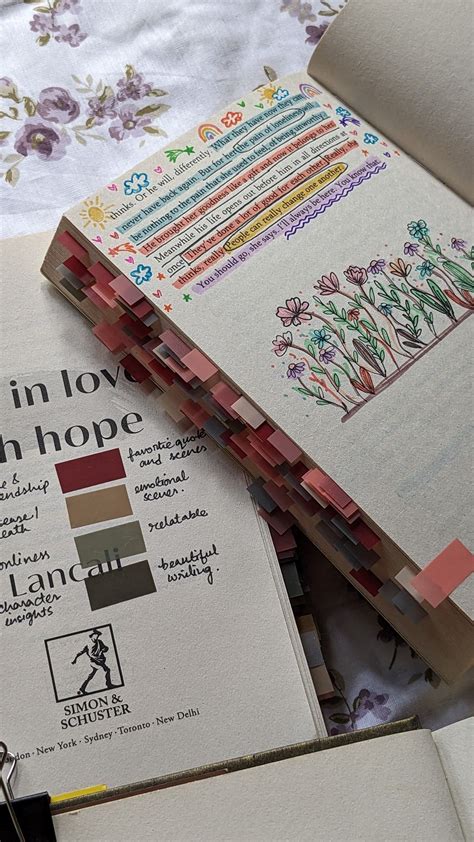 thinks. Or he will, differently. What they have now they can
never have back again. But for her the pain of loneliness will
be nothing to the pain that she used to feel, of being unworthy.
He brought her goodness like a gift and now it belongs to her.
Meanwhile his life opens out before him in all directions at
once. They've done a lot of good for each other. Really, she
thinks, really. People can really change one another.
You should go, she says. I'll always be here. You know that.
in love
h hope
favorite quotes
and scenes
emotional
scenes.
relatable
beautiful
writing.
e &
endship
ease/
eath
onliness
character
insights
Lancali
SIMON &
SCHUSTER
don · New York · Sydney · Toronto · New Delhi